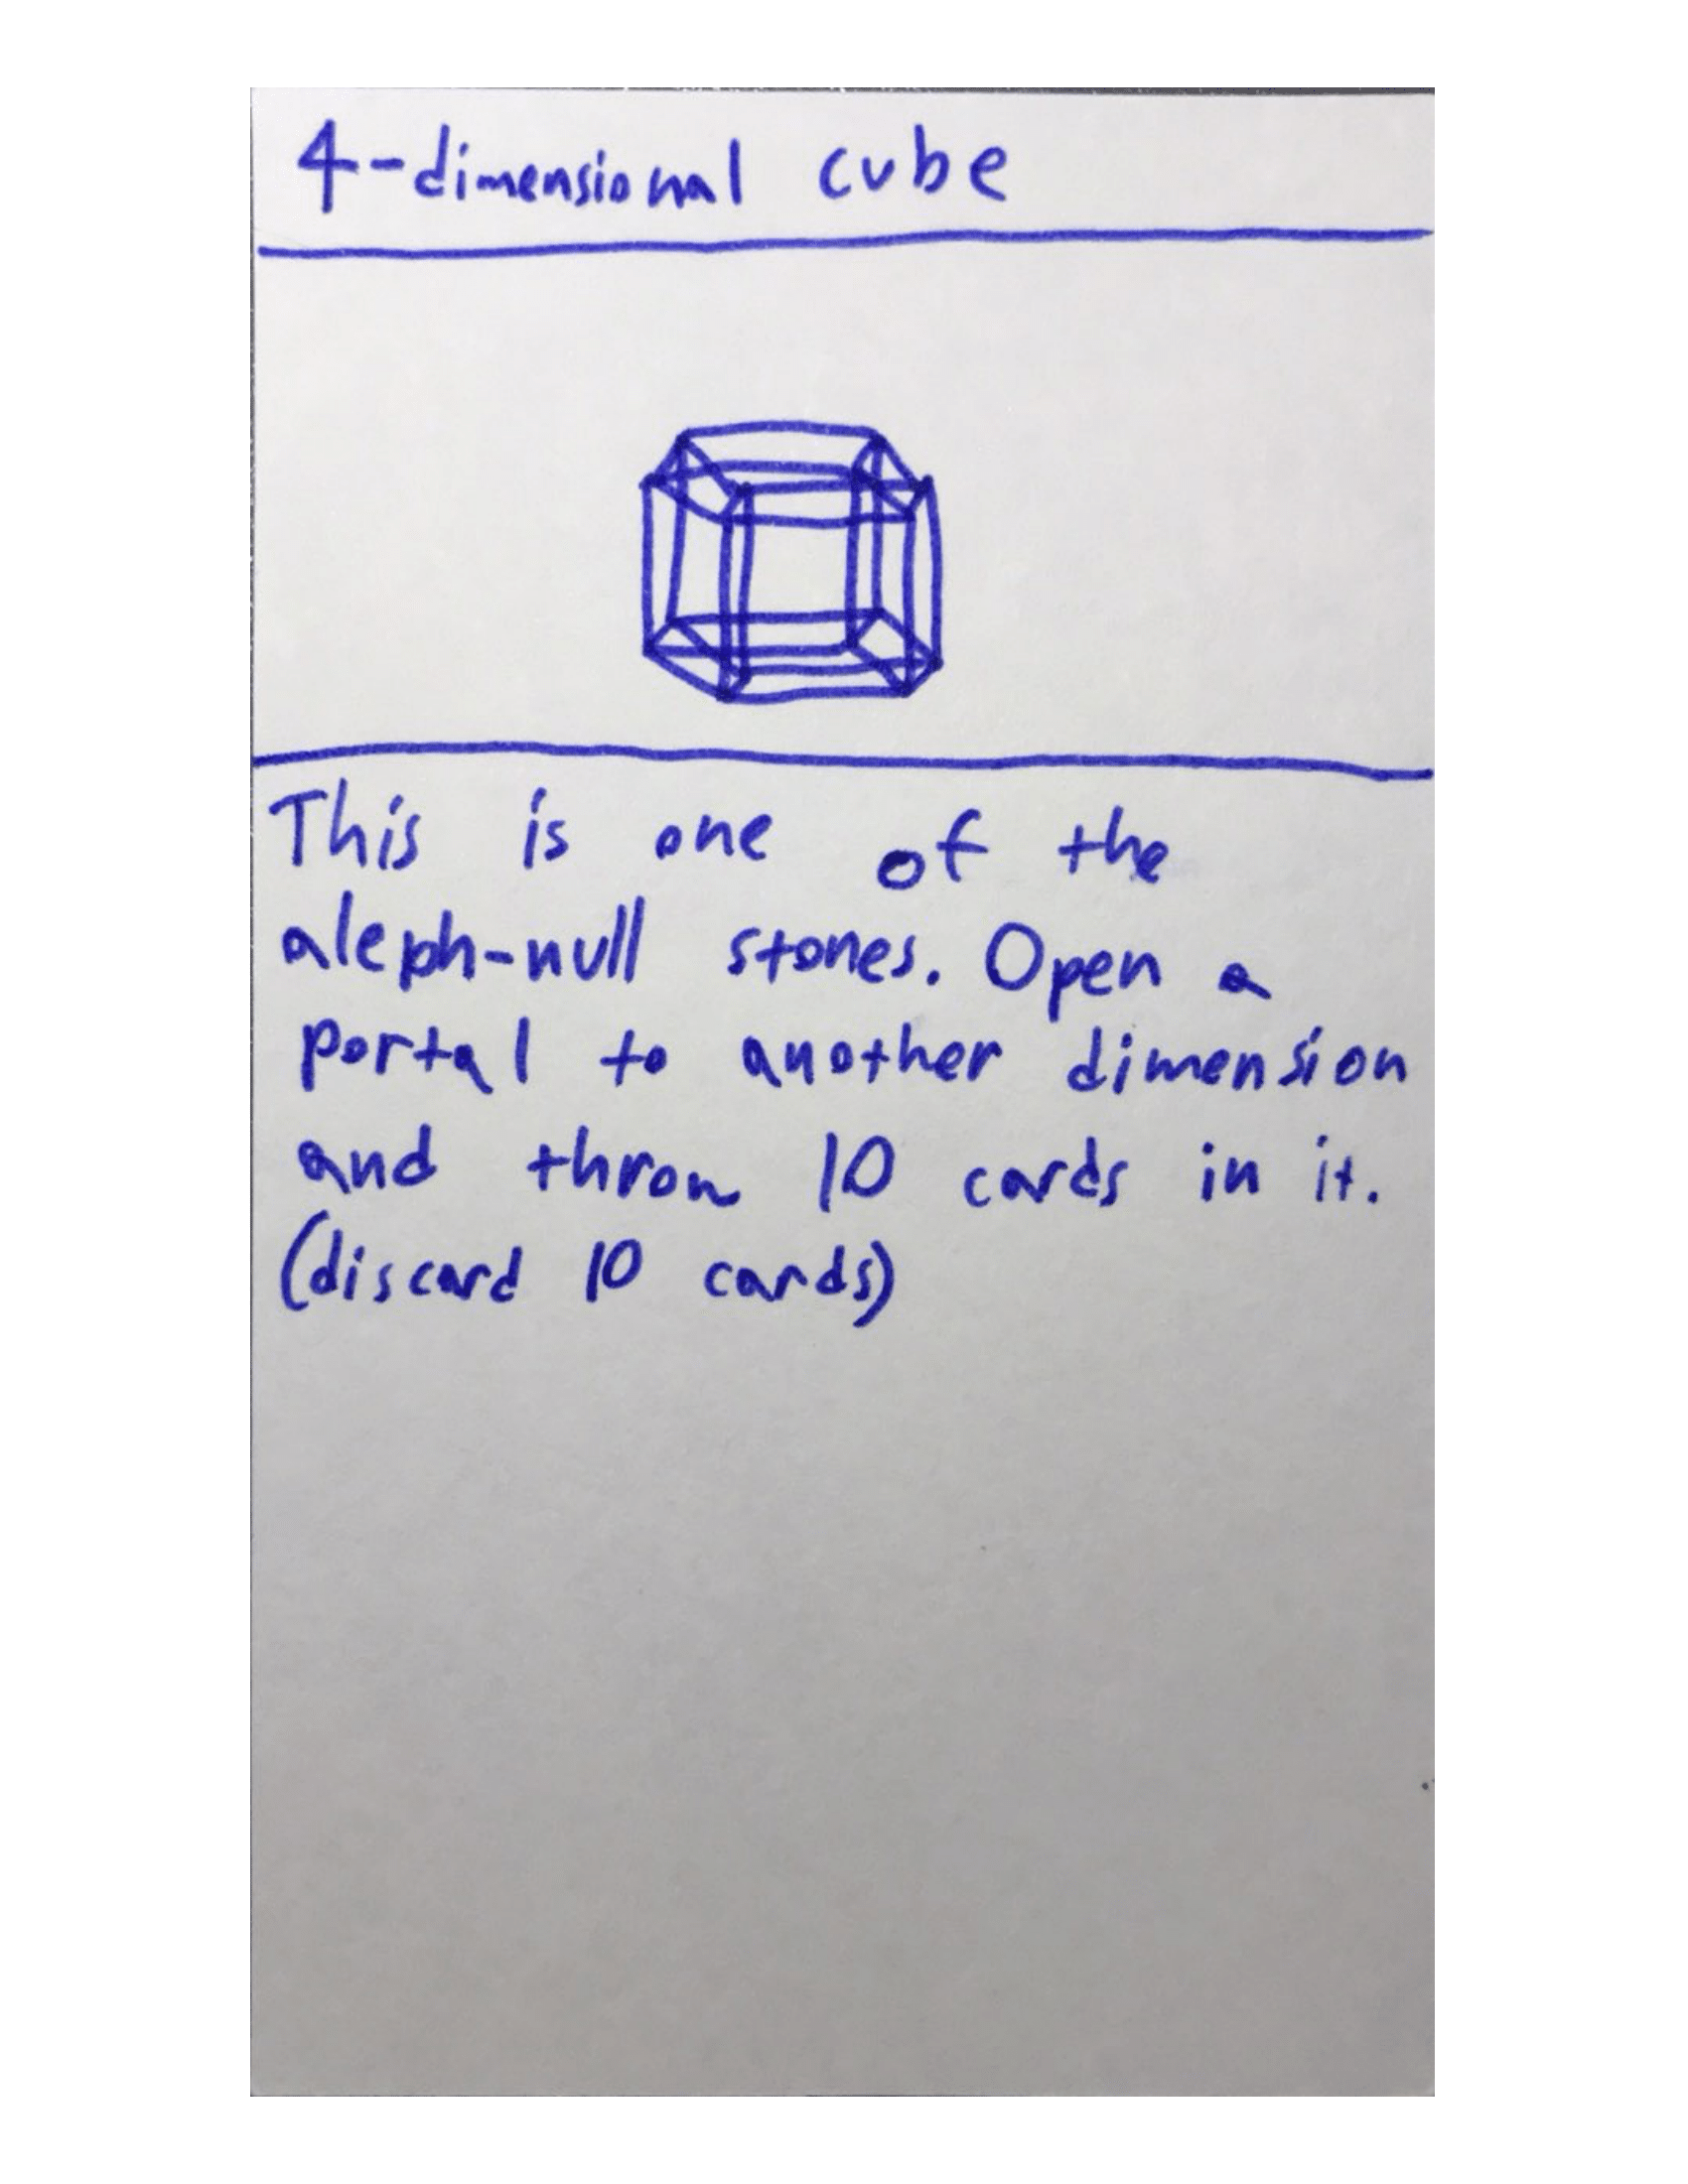 4-dimensional cube
This is one of the
aleph-null stones. Open a
portal to another dimension
and throw 10 cards in it.
(discard 10 cards)